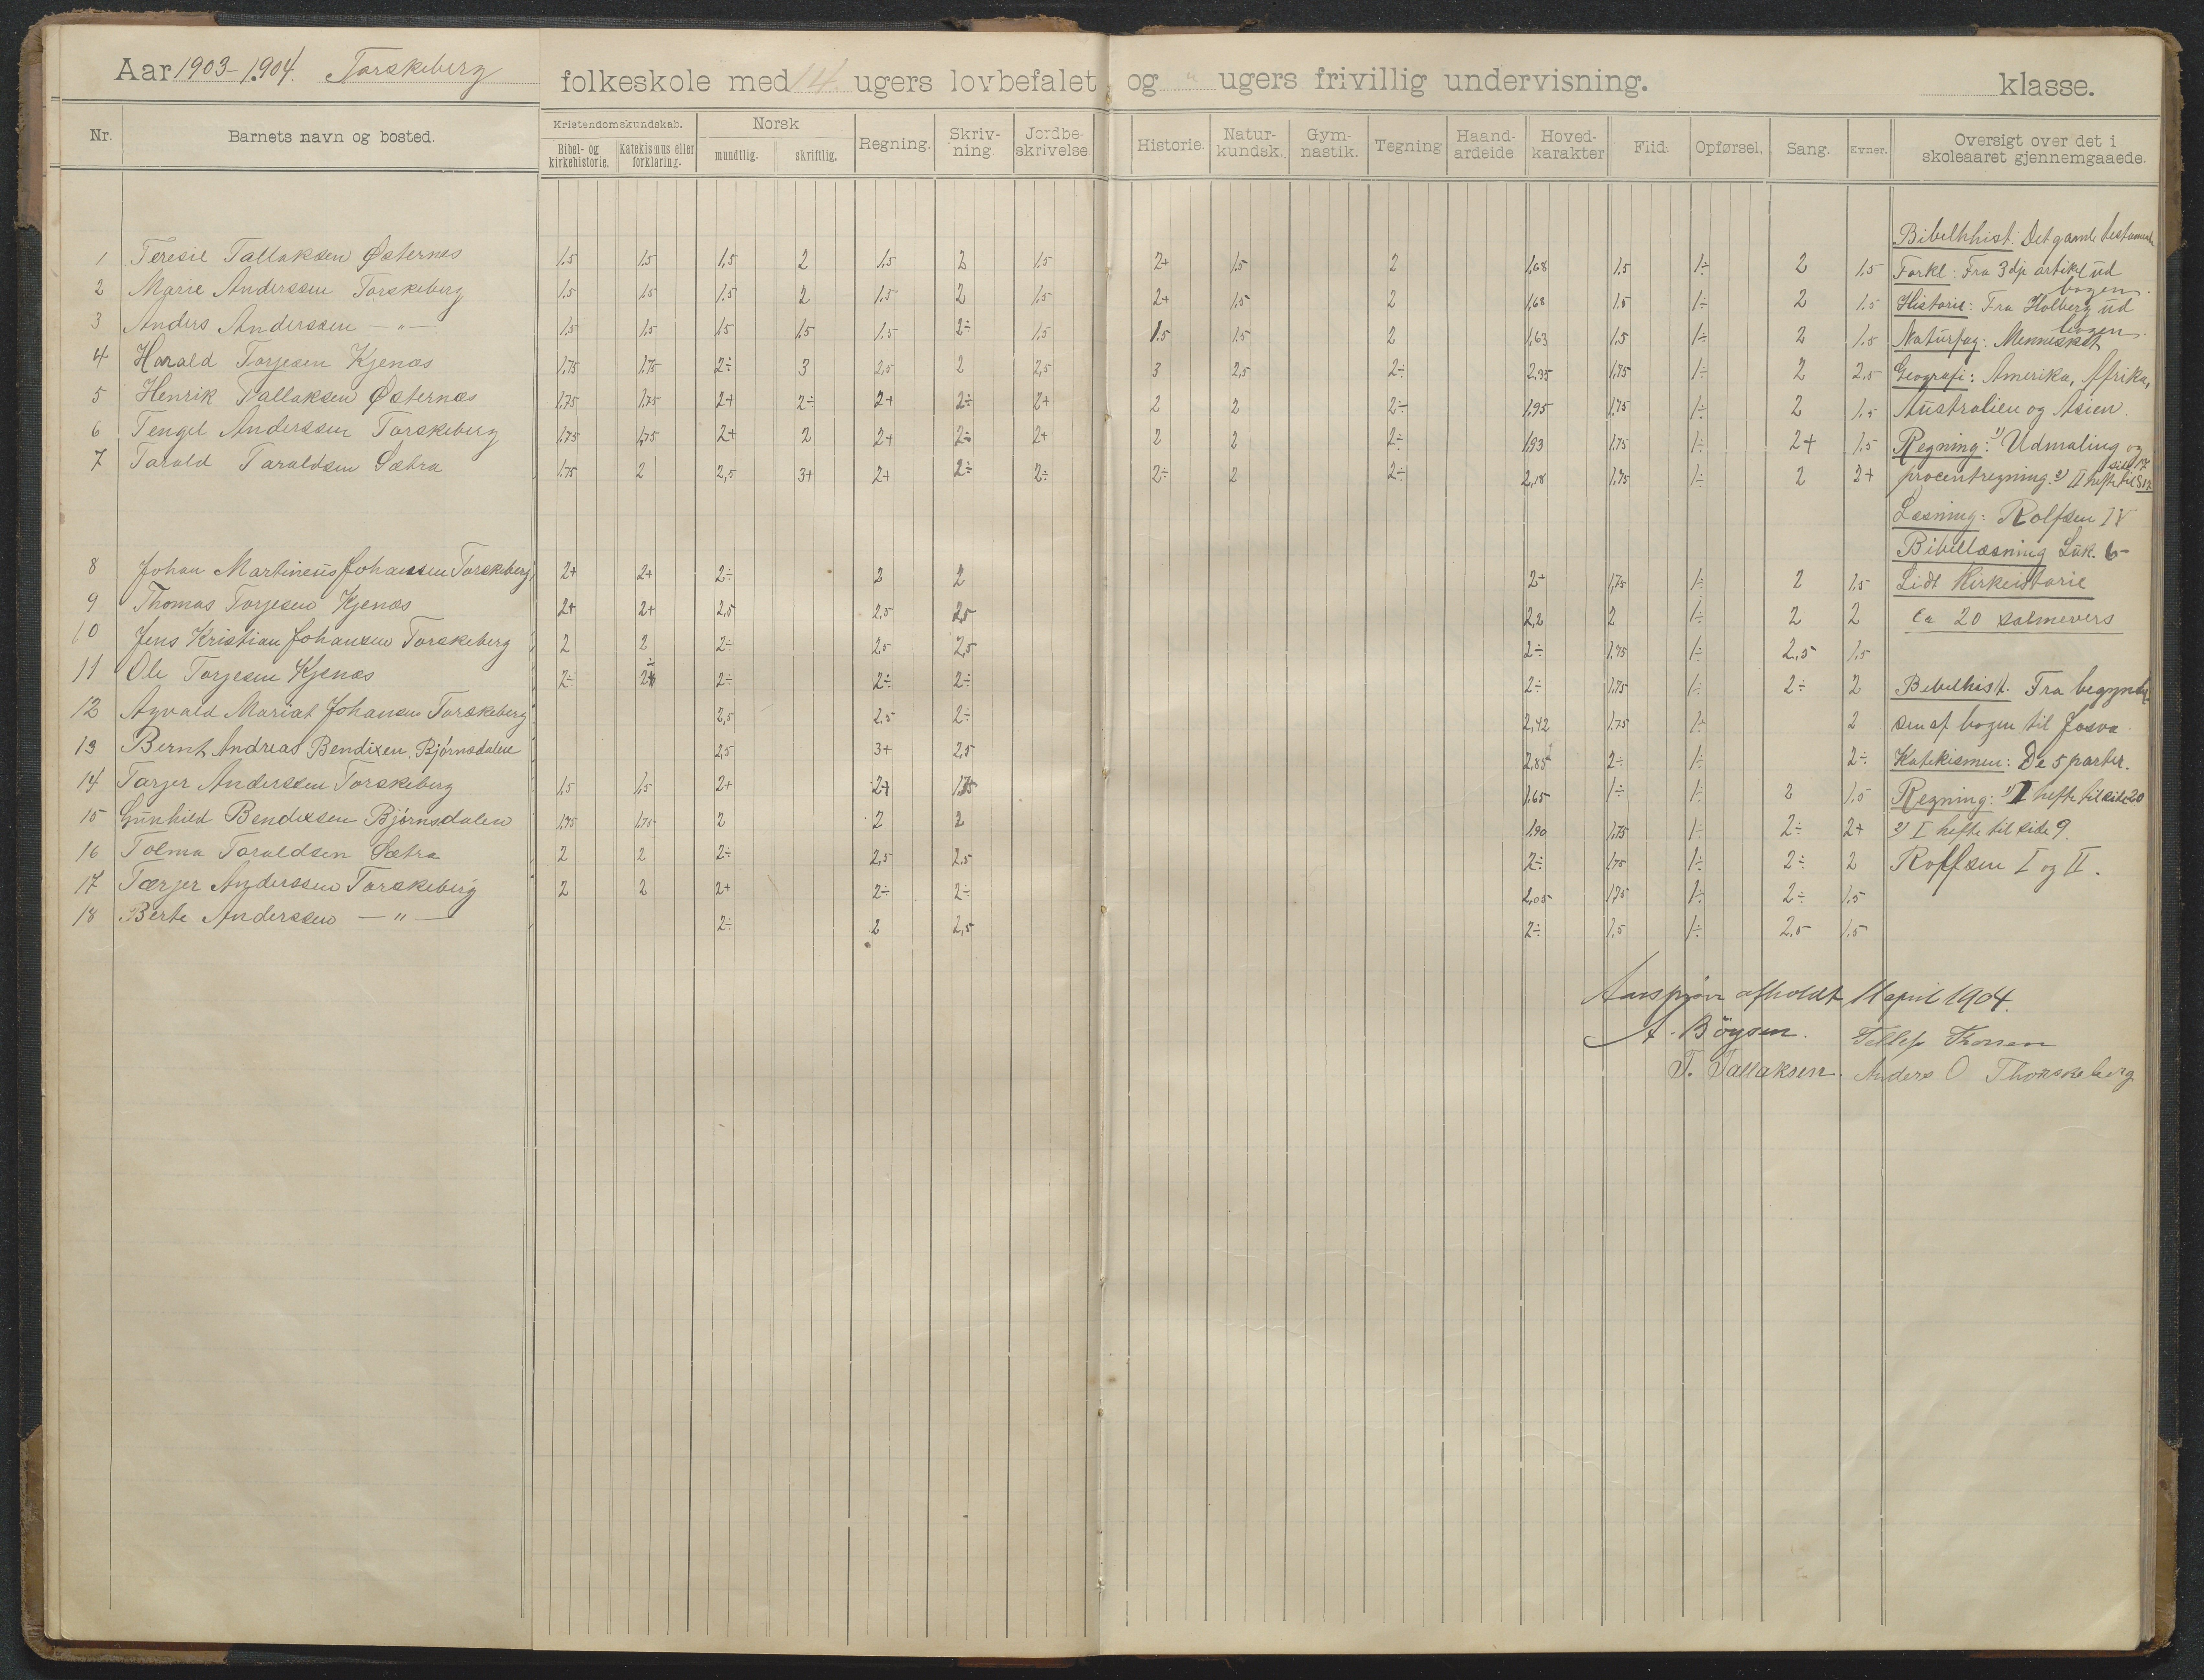 Aar 1903-1904. Torskeberg folkeskole med 14 ugers lovbefalet og " ugers frivillig undervisning. klasse.
Nr. Barnets navn og bosted. Kristendomskundskab. Norsk Regning. Skriv-ning. Jordbe-skrivelse. Historie. Natur-kundsk. Gym-nastik. Tegning Haand-arbeide Hoved-karakter Flid. Opførsel. Sang. Evner. Oversigt over det i skoleaaret gjennemgaaede.
Bibel- og kirkehistorie. Katekismus eller forklaring. mundtlig. skriftlig.
1 Teresie Tallaksen Østernes 1.5 1.5 1.5 2 1.5 2 1.5 2+ 1.5 2 1,68 1.5 1÷ 2 1.5
2 Marie Anderssen Torskeberg 1.5 1.5 1.5 2 1.5 2 1.5 2+ 1.5 2 1,68 1.5 1÷ 2 1.5
3 Anders Anderssen — " — 1.5 1.5 1.5 1.5 1.5 2÷ 1.5 1.5 1.5 2 1,63 1.5 1÷ 2 1.5
4 Harald Torjesen Kjenæs 1.75 1.75 2÷ 3 2,5 2 2,5 3 2,5 2÷ 2,35 1,75 1÷ 2 2,5
5 Henrik Tallaksen Østernæs 1,75 1,75 2+ 2÷ 2+ 2÷ 2+ 2 2 2÷ 1,95 1,75 1÷ 2 1.5
6 Tengel Anderssen Torskeberg 1,75 1,75 2+ 2 2+ 2÷ 2+ 2 2 2÷ 1,93 1.75 1÷ 2+ 1.5
7 Tarald Taraldsen Sætra 1.75 2 2,5 3+ 2+ 2÷ 2÷ 2÷ 2 2÷ 2,18 1,75 1÷ 2 2+
8 Johan Martineus Johansen Torskeberg 2+ 2+ 2÷ 2 2 2+ 1,75 1÷ 2 1.5
9 Thomas Torjesen Kjenæs 2+ 2+ 2,5 2,5 2,5 2,2 2 1÷ 2 2
10 Jens Kristian Johansen Torskeberg 2 2 2÷ 2,5 2,5 2÷ 1.75 1÷ 2,5 1.5
11 Ole Torjesen Kjenæs 2÷ 2÷ 2÷ 2÷ 2÷ 2÷ 1.75 1÷ 2÷ 2
12 Agvald Mariat Johansen Torskeberg 2,5 2,5 2÷ 2,42 1.75 1÷ 2
13 Bernt Andreas Bendixen Bjørnsdalen 2,5 3+ 2,5 2,85 2÷ 1÷ 2÷
14 Tarjer Anderssen Torskeberg 1,5 1,5 2+ 2+ 1.75 1,65 1÷ 1÷ 2 1,5
15 Gunhild Bendixsen Bjørnsdalen 1,75 1,75 2 2 2 1,90 1,75 1÷ 2÷ 2+
16 Tolma Taraldsen Sætra 2 2 2÷ 2,5 2,5 2÷ 1.75 1÷ 2÷ 2
17 Tærjer Anderssen Torskeberg 2 2 2+ 2÷ 2÷ 2,05 1,75 1÷ 2÷ 1.5
18 Berte Anderssen — " — 2÷ 2 2,5 2÷ 1,5 1÷ 2,5 1,5
Bibelhist: Det gamle testamente
Forkl: Fra 3dje artikel ud
bogen.
Historie: Fra Holberg ud
bogen.
Naturfag: Mennesket
Geografi: Amerika, Afrika,
Australien og Asien.
Regning: 1) Udmaling og
procentregning. 2) II hefte til
Læsning: Rolfsen IV
Bibellæsning Luk. 6-
Lidt Kirkeistorie
Ca 20 salmevers
Bibelhist. Fra begyndel
sen af bogen til Josva
Katekismen: De 5 parter.
Regning: 1) I hefte til side 20
2) I hefte til side 9.
Rolfsen I og II.
Aarsprøve afholdt 11 april 1904.
A. Böysen. Tellef
T. Tallaksen. Anders O Thorskeberg